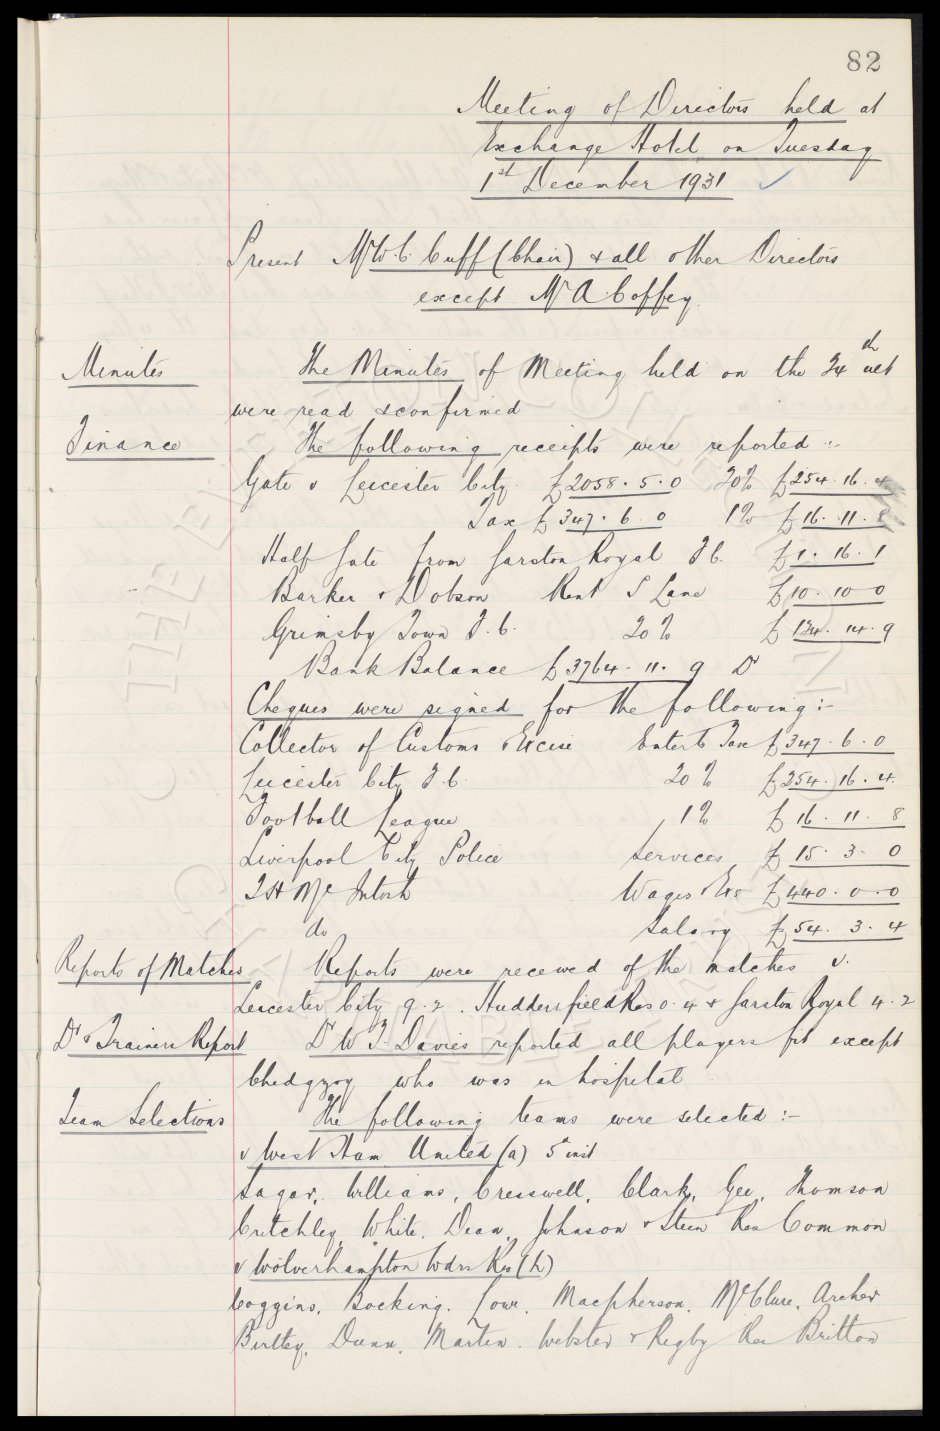 82
Meeting of Directors held at
Exchange Hotel on Tuesday
1st December 1931 ✓
Present Mr W. C. Cuff (Chair) & all other Directors
except Mr A Coffey.
Minutes The Minutes of Meeting held on the 24th ult
were read & confirmed
Finance The following receipts were reported :-
Gate v Leicester City £2058. 5. 0 20% £254. 16. 4
Tax £347. 6. 0 1% £16. 11. 8
Half Gate from Garston Royal F.C. £1. 16. 1
Barker & Dobson Rent S Lane £10. 10 0
Grimsby Town F.C. 20% £134. 14. 9
Bank Balance £3764. 11. 9 Dr
Cheques were signed for the following :-
Collector of Customs & Excise Enterts Tax £347. 6. 0
Leicester City F.C. 20% £254. 16. 4.
Football League 1% £16. 11. 8
Liverpool City Police Services £15. 3. 0
T H McIntosh Wages & Exs £440. 0. 0
do Salary £54. 3. 4
Reports of Matches Reports were received of the matches v.
Leicester City 9. 2. Huddersfield Res 0. 4 & Garston Royal 4. 2
Dr & Trainers Report Dr W. F. Davies reported all players fit except
Chedgzoy who was in hospital
Team Selections The following teams were selected :-
v West Ham United (a) 5th inst
Sagar, Williams, Cresswell, Clark, Gee, Thomson
Critchley, White, Dean, Johnson & Stein Res Common
v Wolverhampton Wdrs Res (h)
Coggins, Bocking. Lowe. Macpherson. McClure. Archer
Birtley, Dunn. Martin. Webster & Rigby Res Britton